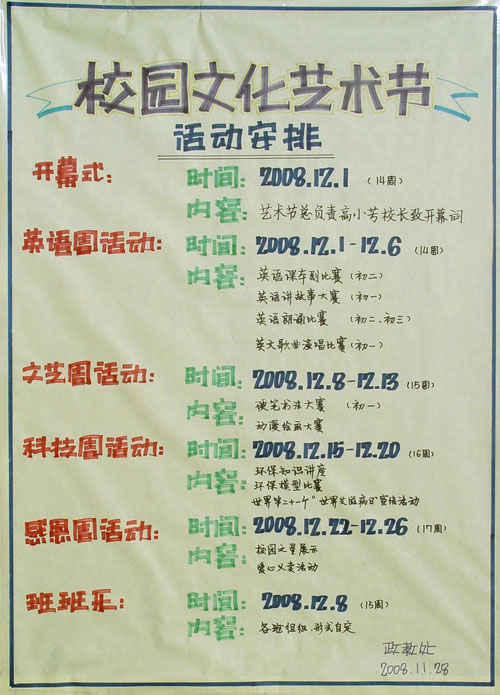 校园文化艺术节
活动安排
开幕式: 时间: 2008.12.1 (14周)
内容: 艺术节总负责高小芳校长致开幕词
英语周活动: 时间: 2008.12.1-12.6 (14周)
内容: 英语课本剧比赛(初二)
英语讲故事大赛(初一)
英语朗诵比赛(初二、初三)
英文歌曲演唱比赛(初一)
文艺周活动: 时间: 2008.12.8-12.13 (15周)
内容: 硬笔书法大赛(初一)
动漫绘画大赛
科技周活动: 时间: 2008.12.15-12.20 (16周)
内容: 环保知识讲座
环保模型比赛
世界第二十一个"世界艾滋病日"宣传活动
感恩周活动: 时间: 2008.12.22-12.26 (17周)
内容: 校园之星展示
爱心义卖活动
班班乐: 时间: 2008.12.8 (15周)
内容: 各班组织、形式自定
政教处
2008.11.28